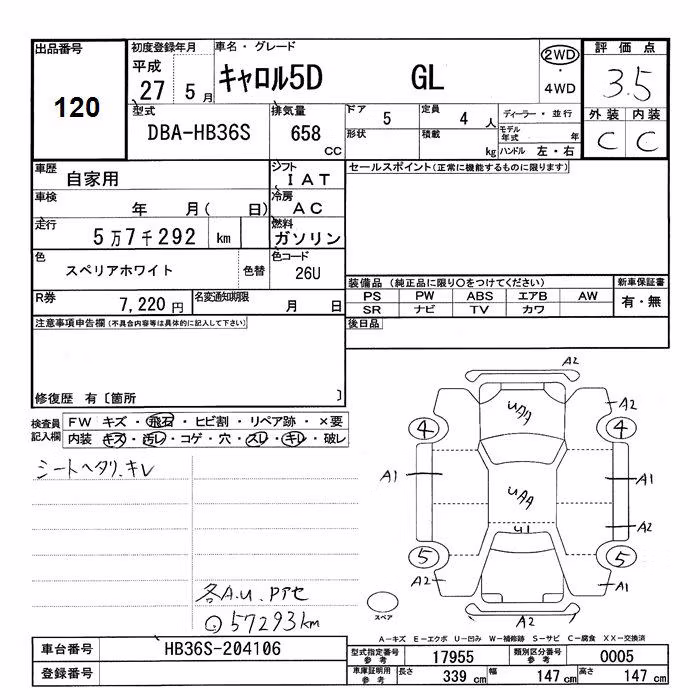 出品番号
120
初度登録年月
平成
27 5 月
車名・グレード
キャロル5D GL
2WD
・
4WD
評価点
3.5
外装 内装
C C
型式
DBA-HB36S
排気量
658
CC
ドア
5
定員
4 人
形状
積載
kg
ディーラー・並行
モデル年式
年
ハンドル 左・右
車歴
自家用
シフト
IAT
車検
年 月( 日)
冷房
AC
走行
5万7千292 km
燃料
ガソリン
色
スペリアホワイト
色替
色コード
26U
R券
7,220 円
名変通知期限
月 日
セールスポイント(正常に機能するものに限ります)
装備品 (純正品に限り○をつけてください)
新車保証書
PS PW ABS エアB AW
SR ナビ TV カワ
有・無
後日品
注意事項申告欄(不具合内容等は具体的に記入して下さい)
修復歴 有〔箇所 〕
検査員
記入欄
FW キズ・飛石・ヒビ割・リペア跡・×要
内装 キズ・汚レ・コゲ・穴・スレ・キレ・破レ
シートヘタリ、キレ
各A.U.Pアセ
57293km
A2
UAA
A2
4
4
A1
A1
UAA
A2
U1
5
5
A2
A1
A2
スペア
A-キズ E-エクボ U-凹み W-補修跡 S-サビ C-腐食 XX-交換済
車台番号
HB36S-204106
登録番号
型式指定番号
参考
17955
類別区分番号
参考
0005
車庫証明用
参考
長さ
339 cm
幅
147 cm
高さ
147 cm